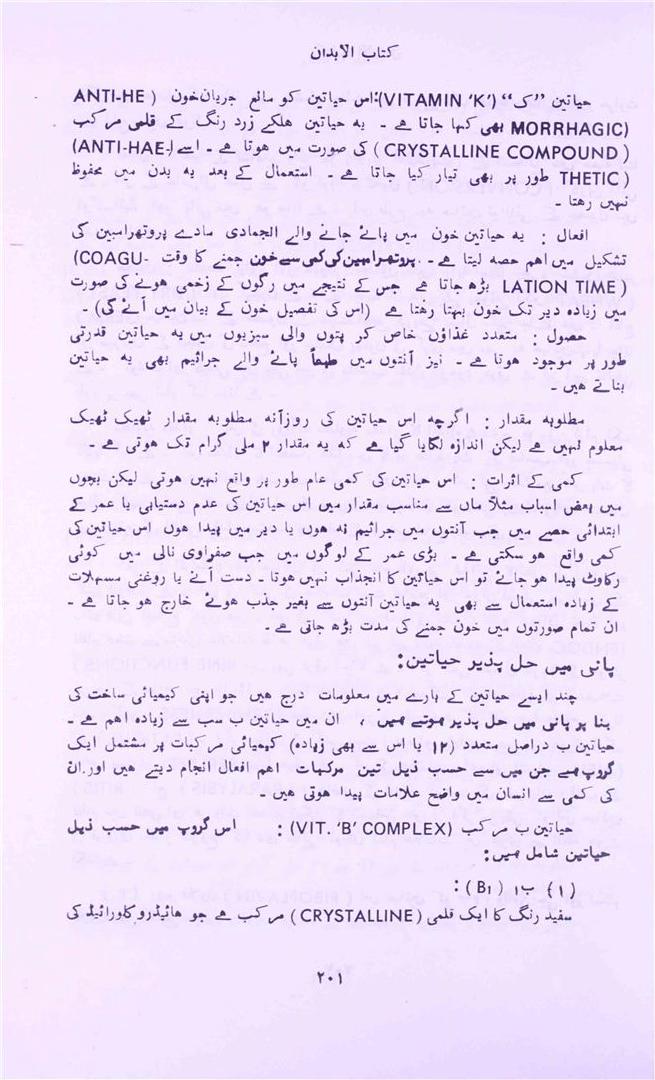 کتاب الابدان
حیاتین ”ک“ (VITAMIN 'K'): اس حیاتین کو مانع جریان خون ( ANTI-HE
MORRHAGIC) بھی کہا جاتا ہے ۔ یہ حیاتین ہلکے زرد رنگ کے قلمی مرکب
( CRYSTALLINE COMPOUND ) کی صورت میں ہوتا ہے ۔ اسے (ANTI-HAE-
THETIC ) طور پر بھی تیار کیا جاتا ہے ۔ استعمال کے بعد یہ بدن میں محفوظ
نہیں رہتا ۔
افعال : یہ حیاتین خون میں پائے جانے والے انجمادی مادے پروتھرامبین کی
تشکیل میں اہم حصہ لیتا ہے ۔ پروتھرامبین کی کمی سے خون جمنے کا وقت (COAGU-
LATION TIME ) بڑھ جاتا ہے جس کے نتیجے میں رگوں کے زخمی ہونے کی صورت
میں زیادہ دیر تک خون بہتا رہتا ہے (اس کی تفصیل خون کے بیان میں آئے گی) ۔
حصول : متعدد غذاؤں خاص کر پتوں والی سبزیوں میں یہ حیاتین قدرتی
طور پر موجود ہوتا ہے ۔ نیز آنتوں میں طبعاً پائے والے جراثیم بھی یہ حیاتین
بناتے ہیں ۔
مطلوبہ مقدار : اگرچہ اس حیاتین کی روزآنہ مطلوبہ مقدار ٹھیک ٹھیک
معلوم نہیں ہے لیکن اندازہ لگایا گیا ہے کہ یہ مقدار ۲ ملی گرام تک ہوتی ہے ۔
کمی کے اثرات : اس حیاتین کی کمی عام طور پر واقع نہیں ہوتی لیکن بچوں
میں بعض اسباب مثلاً ماں سے مناسب مقدار میں اس حیاتین کی عدم دستیابی یا عمر کے
ابتدائی حصے میں جب آنتوں میں جراثیم نہ ہوں یا دیر میں پیدا ہوں اس حیاتین کی
کمی واقع ہو سکتی ہے ۔ بڑی عمر کے لوگوں میں جب صفراوی نالی میں کوئی
رکاوٹ پیدا ہو جائے تو اس حیاتین کا انجذاب نہیں ہوتا ۔ دست آنے یا روغنی مسہلات
کے زیادہ استعمال سے بھی یہ حیاتین آنتوں سے بغیر جذب ہوئے خارج ہو جاتا ہے ۔
ان تمام صورتوں میں خون جمنے کی مدت بڑھ جاتی ہے ۔
پانی میں حل پذیر حیاتین:
چند ایسے حیاتین کے بارے میں معلومات درج ہیں جو اپنی کیمیائی ساخت کی
بنا پر پانی میں حل پذیر ہوتے ہیں ، ان میں حیاتین ب سب سے زیادہ اہم ہے ۔
حیاتین ب دراصل متعدد (۱۲ یا اس سے بھی زیادہ) کیمیائی مرکبات پر مشتمل ایک
گروپ ہے جن میں سے حسب ذیل تین مرکبات اہم افعال انجام دیتے ہیں اور ان
کی کمی سے انسان میں واضح علامات پیدا ہوتی ہیں ۔
حیاتین ب مرکب (VIT. 'B' COMPLEX) : اس گروپ میں حسب ذیل
حیاتین شامل ہیں:
{۱} ب۱ (B1) :
سفید رنگ کا ایک قلمی (CRYSTALLINE) مرکب ہے جو ہائیڈروکلورائیڈ کی
۲۰۱